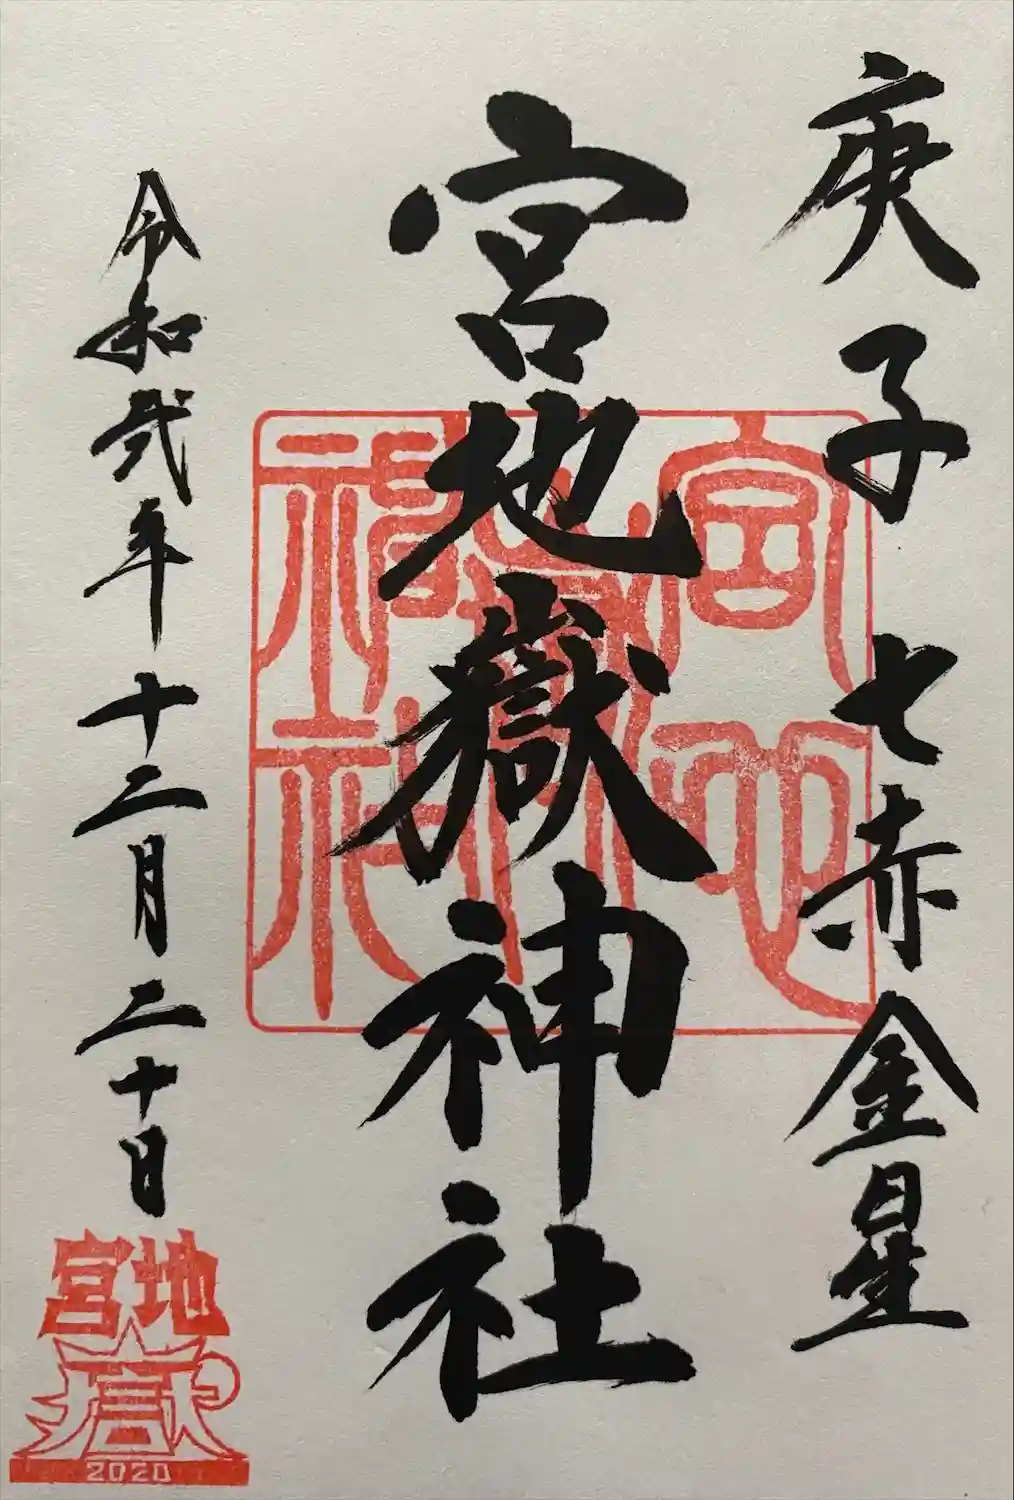 庚子 七赤金星
宮地嶽神社
宮地嶽神社
令和弐年十二月二十日
宮地
嶽
2020